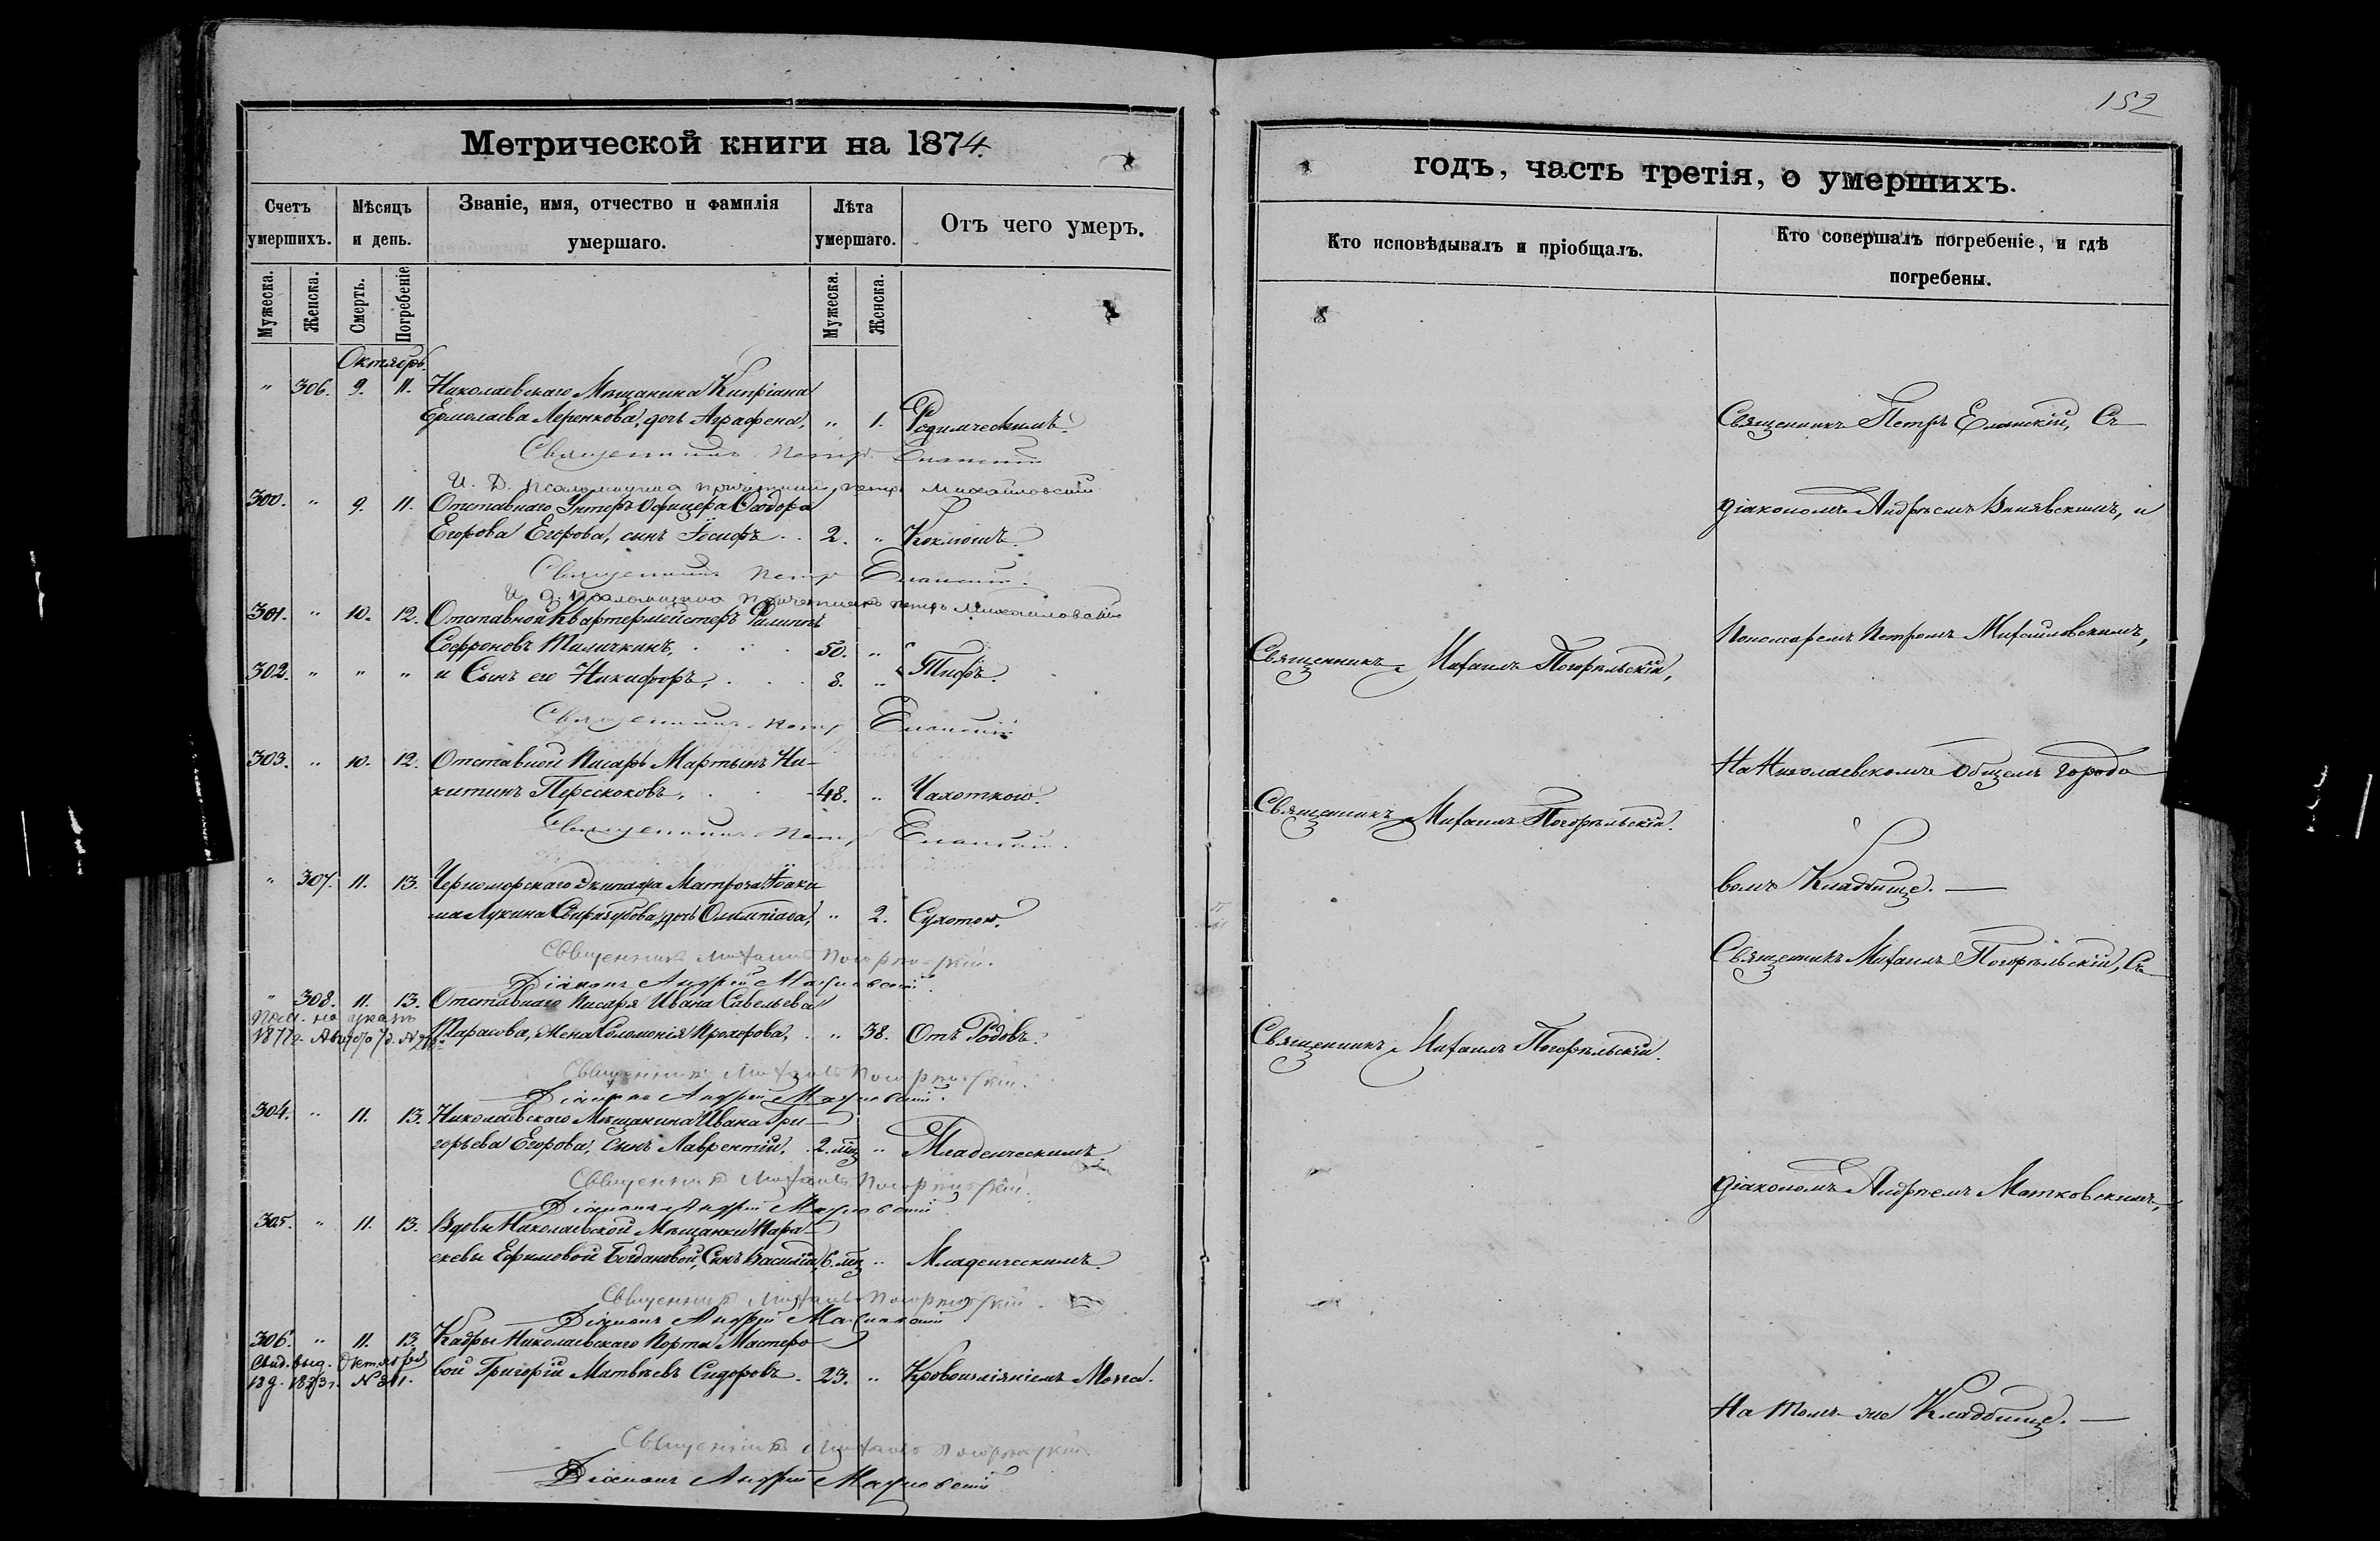 152
Метрической книги на 1874.
Счетъ умершихъ.
Мѣсяцъ и день.
Званіе, имя, отчество и фамилія умершаго.
Лѣта умершаго.
Отъ чего умеръ.
Мужеска. Женска. Смерть. Погребеніе Мужеска. Женска.
Октябрь
" 306. 9. 11. Николаевскаго Мѣщанина Кипріана
Ермолаева Леренкова, дочь Аграфена, " 1. Родимческимъ.
Священникъ Петръ Еланскій
И. Д. псаломщика причетникъ Петръ Михайловскій
300. " 9. 11. Отставнаго Унтеръ Офицера Ѳеодора
Егорова Егорова, сынъ Іосифъ 2. " Коклюшъ.
Священникъ Петръ Еланскій.
И. д. псаломщика причетникъ Петръ Михайловскій
301. " 10. 12. Отставной Квартермейстеръ Филиппъ
Софроновъ Тиличкинъ, 50. "
302. " " " и Сынъ его Никифоръ, 8. " Тифъ.
Священникъ Петръ Еланскій
303. " 10. 12. Отставной Писарь Мартынъ Ни-
китинъ Перескоковъ, 48. " Чахоткою.
Священникъ Петръ Еланскій.
" 307. 11. 13. Черноморскаго Экипажа Матроза Іоаки
ма Лукина дочь Олимпіада, " 2. Сухотою.
Священникъ Михаилъ Погорѣльскій.
Діаконъ Андрей Матковскій.
" 308. 11. 13. Отставнаго Писаря Ивана Савельева
Тарасова, Жена Соломонія Прохорова, " 38. Отъ Родовъ.
Священникъ Михаилъ Погорѣльскій.
Діаконъ Андрей Матковскій.
304. " 11. 13. Николаевскаго Мѣщанина Ивана Гри-
горьева Егорова, сынъ Лаврентій, 2. мц " Младенческимъ.
Священникъ Михаилъ Погорѣльскій.
Діаконъ Андрей Матковскій
305. " 11. 13. Вдовы Николаевской Мѣщанки Пара-
скевы Ефимовой Богдановой, Сынъ Василій, 6. мц " Младенческимъ.
Священникъ Михаилъ Погорѣльскій.
Діаконъ Андрей Матковскій
306. " 11. 13. Кадры Николаевскаго Порта Мастеро
Свид. выд. Октября
вой Григорій Матвѣевъ Сидоровъ. 23. " Кровоизліяніемъ Мозга.
Священникъ Михаилъ Погорѣльскій
Діаконъ Андрей Матковскій
годъ, часть третія, о умершихъ.
Кто исповѣдывалъ и пріобщалъ.
Кто совершалъ погребеніе, и гдѣ погребены.
Священникъ Михаилъ Погорѣльскій,
Священникъ Михаилъ Погорѣльскій.
Священникъ Михаилъ Погорѣльскій.
Священникъ Петръ Еланскій, Съ
діакономъ Андреемъ и
Пономаремъ Петромъ Михайловскимъ,
На Николаевскомъ Общемъ Городо
вомъ Кладбище. —
Священникъ Михаилъ Погорѣльскій, Съ
діакономъ Андреемъ Матковскимъ,
На томъ-же Кладбище. —